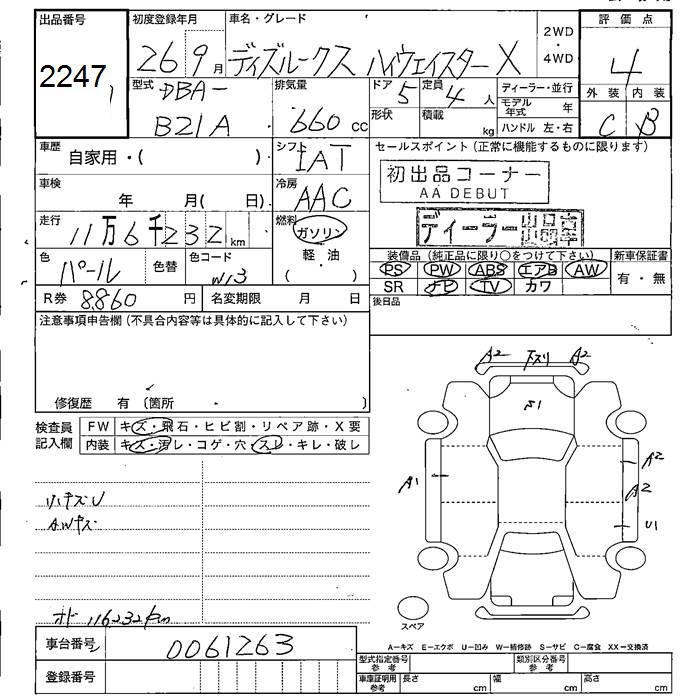 出品番号
2247
初度登録年月
26 9月
車名・グレード
デイズルークス ハイウェイスターX
2WD
・
4WD
評価点
4
外装 内装
C B
型式
DBA-
B21A
排気量
660cc
ドア 5
形状
定員 4人
積載 kg
ディーラー・並行
モデル年式 年
ハンドル 左・右
車歴
自家用・( )
シフト
IAT
セールスポイント(正常に機能するものに限ります)
初出品コーナー
AA DEBUT
ディーラー
車検
年 月( 日)
冷房
AAC
走行
11万6千232km
燃料
ガソリン
軽・油
( )
色
パール
色替
色コード
W13
装備品(純正品に限り○をつけて下さい)
PS PW ABS エアB AW
SR ナビ TV カワ
新車保証書
有・無
後日品
R券 8,860円
名変期限 月 日
注意事項申告欄(不具合内容等は具体的に記入して下さい)
修復歴 有(箇所
検査員
記入欄
FW キズ・飛石・ヒビ割・リペア跡・X要
内装 キズ・汚レ・コゲ・穴・スレ・キレ・破レ
小キズU
AWキズ
オド 116232km
A2 下スリ A2
A1
A2
A2
U1
スペア
車台番号 0061263
登録番号
A-キズ E-エクボ U-凹み W-補修跡 S-サビ C-腐食 XX-交換済
型式指定番号
参考
類別区分番号
参考
車庫証明用
参考
長さ cm
幅 cm
高さ cm